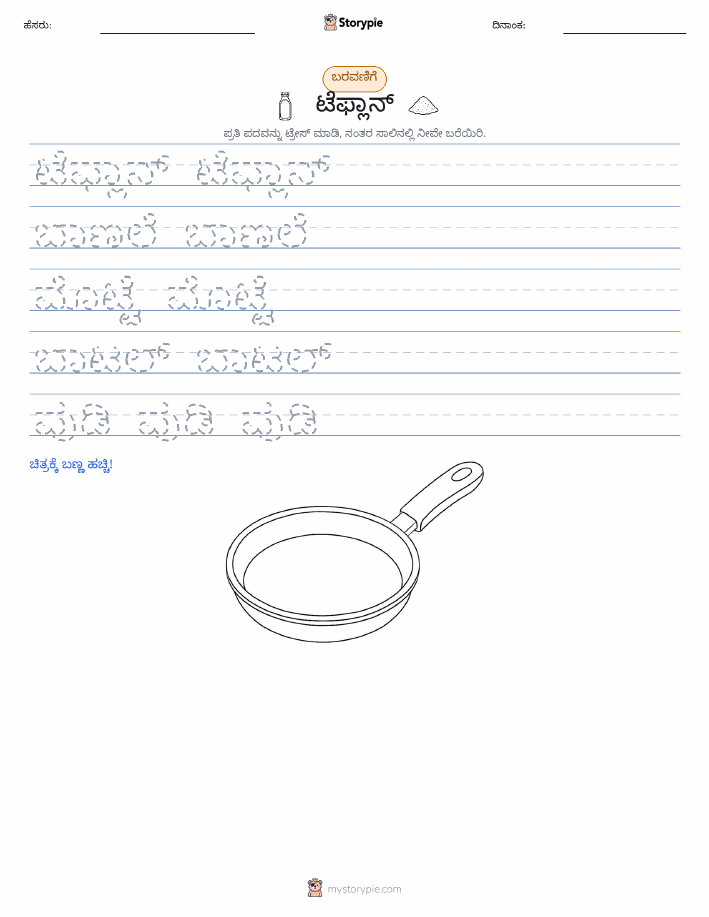 ಹೆಸರು: Storypie ದಿನಾಂಕ:
ಬರವಣಿಗೆ
ಟೆಫ್ಲಾನ್
ಪ್ರತಿ ಪದವನ್ನು ಟ್ರೇಸ್ ಮಾಡಿ, ನಂತರ ಸಾಲಿನಲ್ಲಿ ನೀವೇ ಬರೆಯಿರಿ.
ಟೆಫ್ಲಾನ್ ಟೆಫ್ಲಾನ್
ಬಾಣಲೆ ಬಾಣಲೆ
ಮೊಟ್ಟೆ ಮೊಟ್ಟೆ
ಬಾಟಲ್ ಬಾಟಲ್
ಪುಡಿ ಪುಡಿ ಪುಡಿ
ಚಿತ್ರಕ್ಕೆ ಬಣ್ಣ ಹಚ್ಚಿ!
mystorypie.com